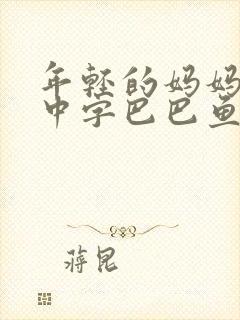 年轻的妈妈
中字巴巴鱼
蒋昆